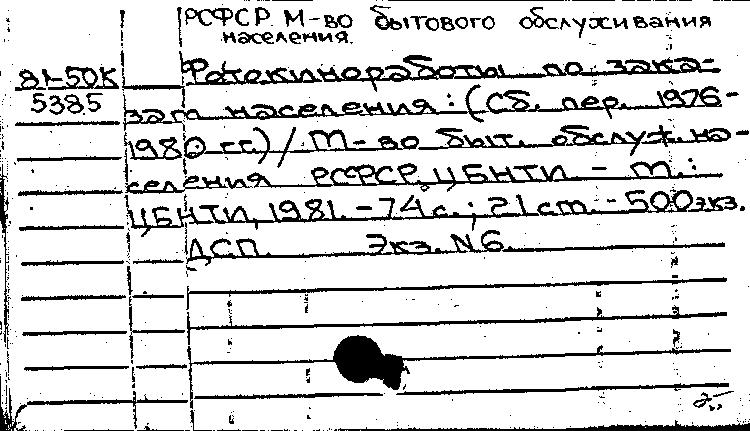 РСФСР М-во бытового обслуживания
населения.
81-50К
5385
Фотокиноработы по зака-
зам населения: (Сб. пер. 1976-
1980 гг.) / М-во быт. обслуж. на-
селения РСФСР. ЦБНТИ - М.:
ЦБНТИ, 1981. - 74 с.; 21 cm. - 500 экз.
ДСП. Экз. N6.